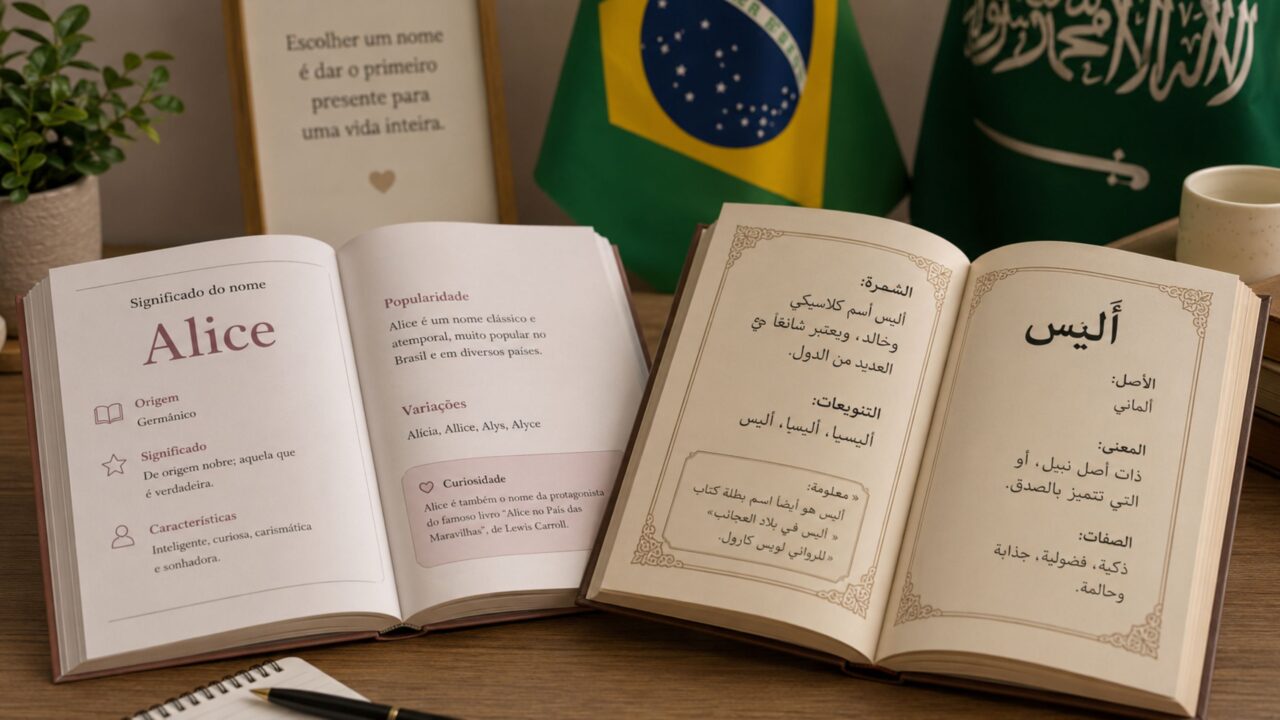 Escolher um nome
é dar o primeiro
presente para
uma vida inteira.
Significado do nome
Alice
Origem
Germânico
Significado
De origem nobre; aquela que
é verdadeira.
Características
Inteligente, curiosa, carismática
e sonhadora.
Popularidade
Alice é um nome clássico e
atemporal, muito popular no
Brasil e em diversos países.
Variações
Alícia, Allice, Alys, Alyce
Curiosidade
Alice é também o nome da protagonista
do famoso livro "Alice no País das
Maravilhas", de Lewis Carroll.
أَليس
الأصل:
ألماني
المعنى:
ذات أصل نبيل، أو
التي تتميز بالصدق.
الصفات:
ذكية، فضولية، جذابة
وحالمة.
الشمرة:
أليس أسم كلاسيكي
وخالد، ويعتبر شانعًا
العديد من الدول.
التنويعات:
أليسيا، أليسا، أليس
« معلومة:
أليس هو أيضا اسم بطلة كتاب
« أليس في بلاد العجائب»
«للرواني لويس كارول.